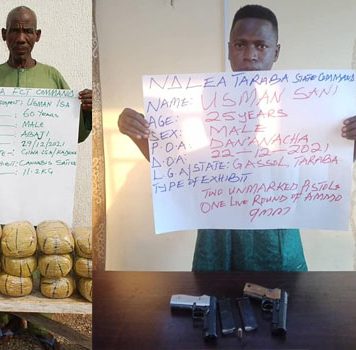 FCT COMMAND
USMAN ISA
60 YEARS
MALE
ABAJI
29/12/2021
CANNABIS SATIVA
11.2KG
NDLEA TARABA STATE COMMAND
NAME: USMAN SANI
AGE: 25 YEARS
SEX: MALE
P.O.A: DAN'ANACHA
D.O.A: 22-12-2021
L.G.A/STATE: GASSOL, TARABA
TYPE OF EXHIBIT
TWO UNMARKED PISTOLS
ONE LIVE ROUND OF AMMO
9MM